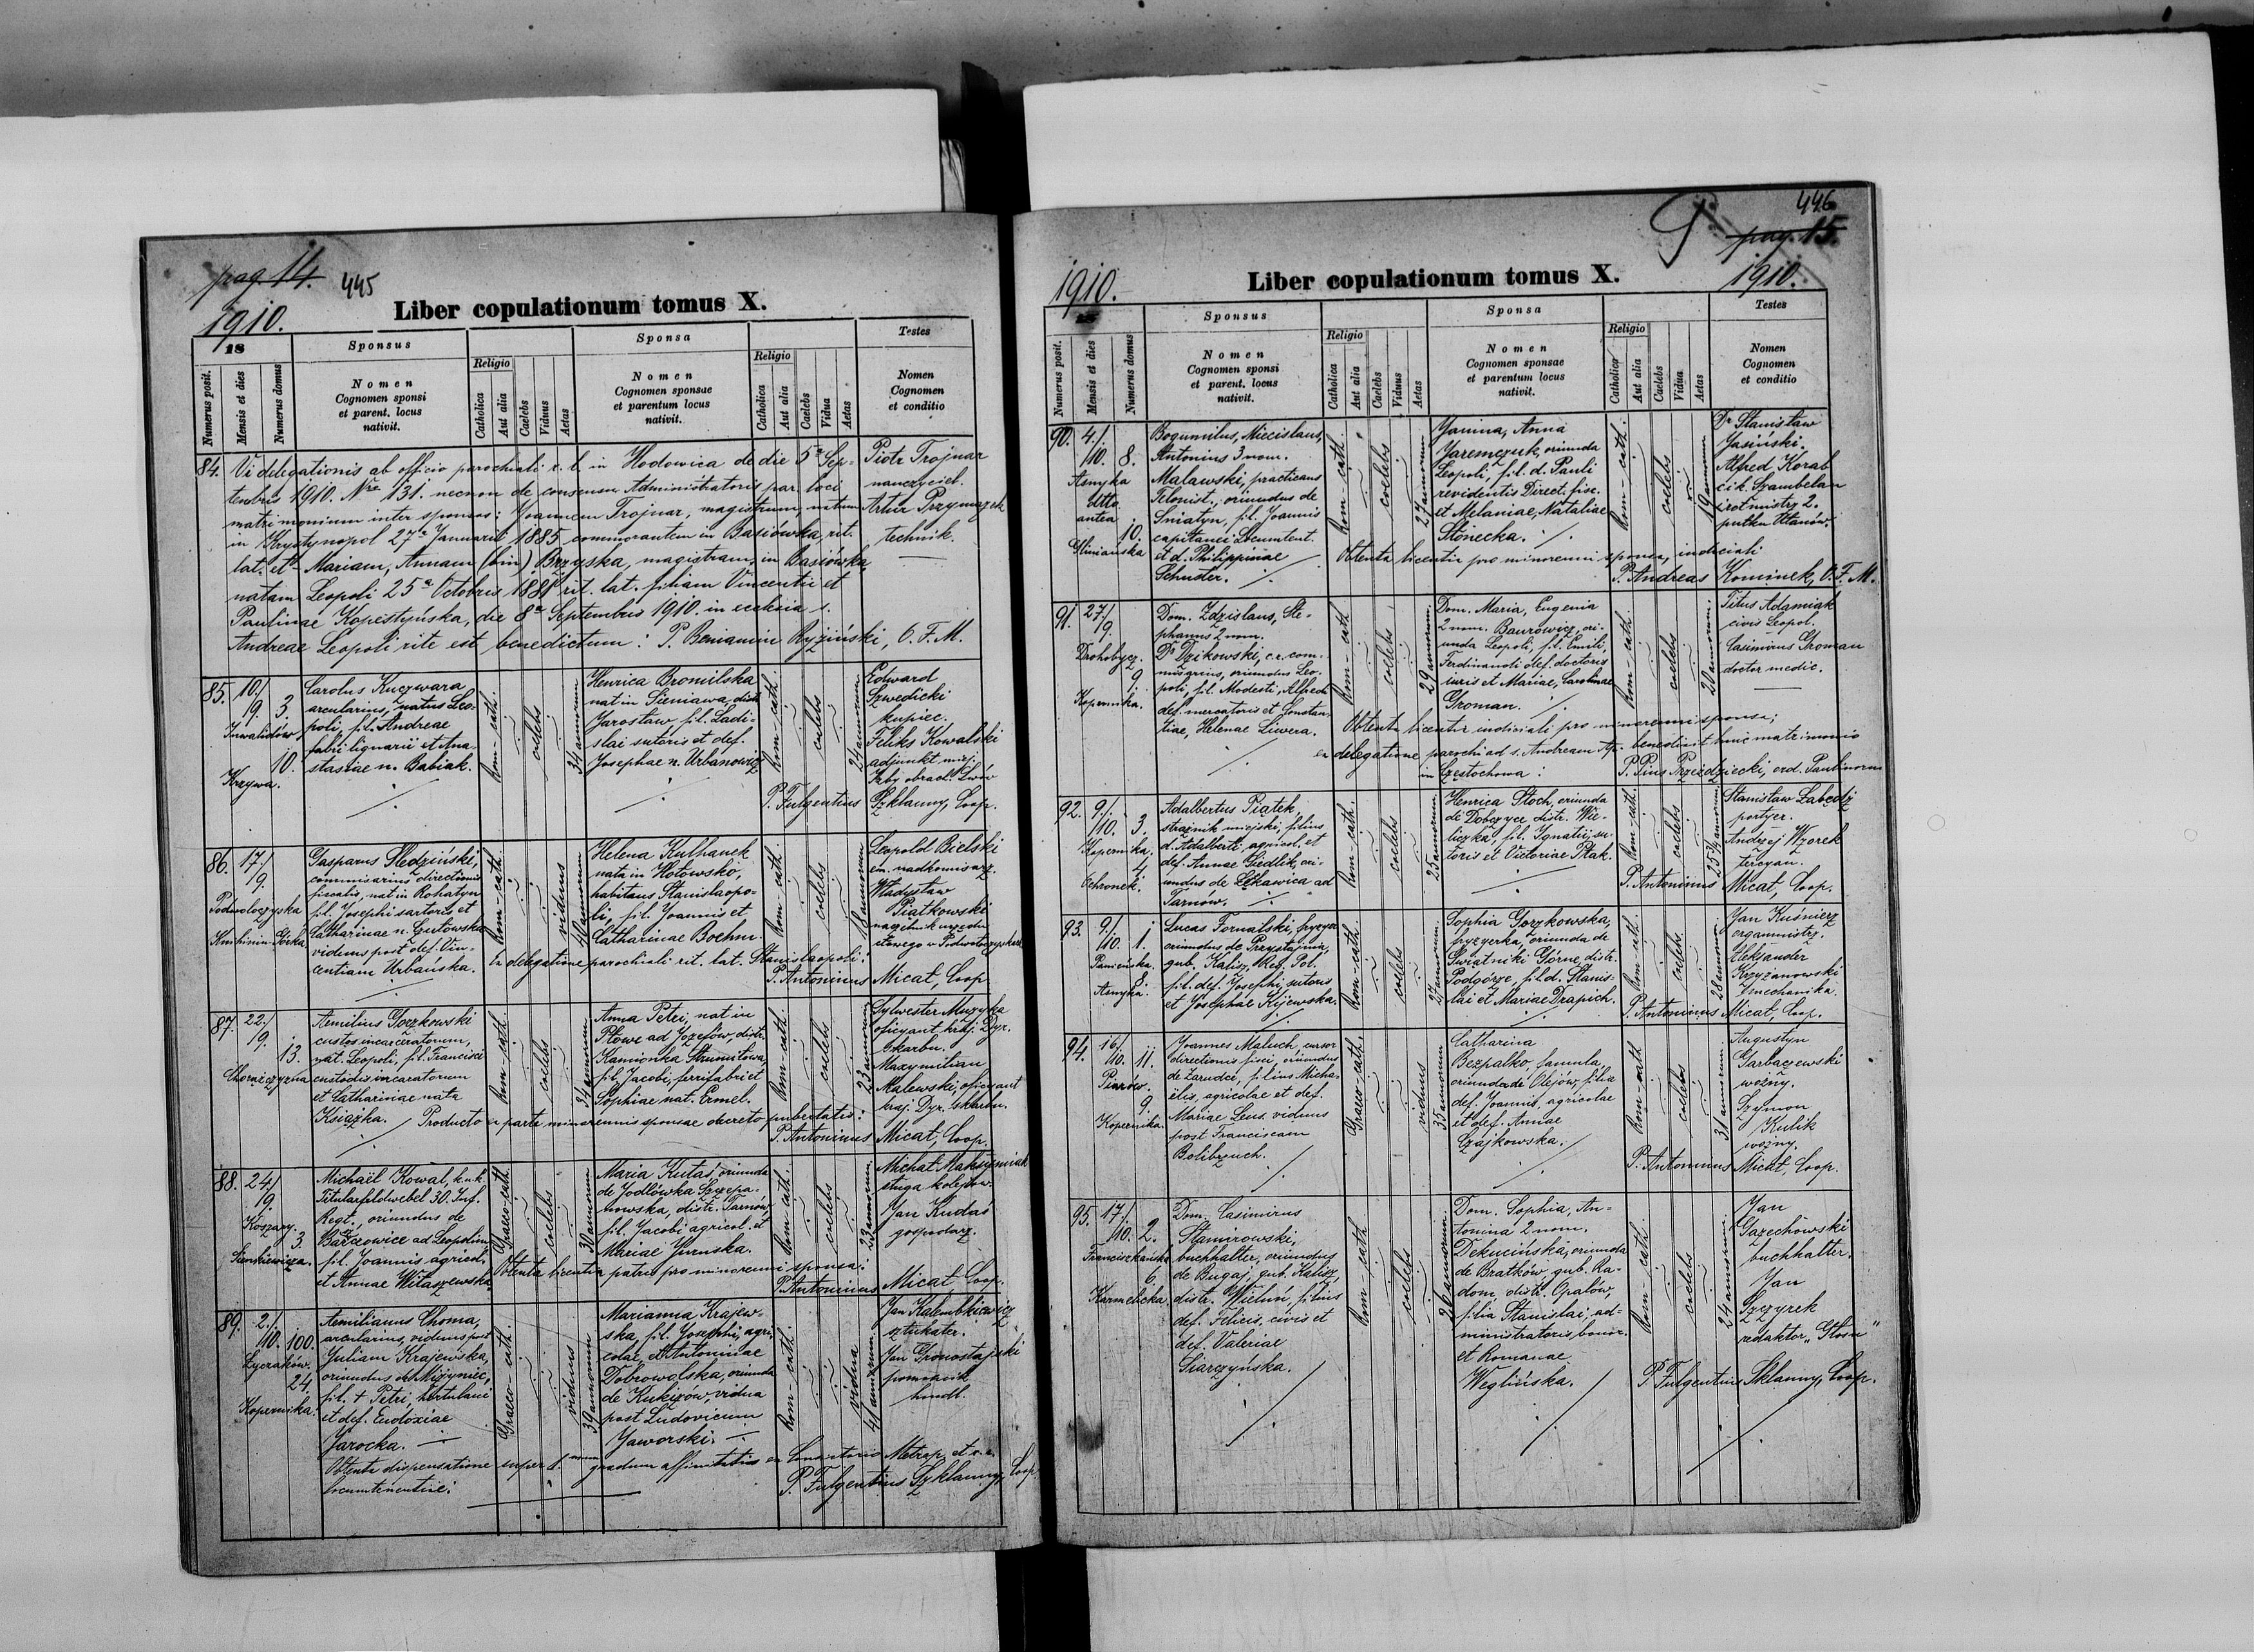 pag. 14.
445
1910.
Liber copulationum tomus X.
18
Sponsus
Sponsa
Testes
Numerus posit.
Mensis et dies
Numerus domus
Nomen
Cognomen sponsi
et parent. locus
nativit.
Religio
Catholica
Aut alia
Caelebs
Viduus
Aetas
Nomen
Cognomen sponsae
et parentum locus
nativit.
Religio
Catholica
Aut alia
Caelebs
Vidua
Aetas
Nomen
Cognomen
et conditio
84. Vi delegationis ab officio parochiali r. l. in Hodowica de die 5ª Sep-
tembris 1910. Nro 131. necnon de consensu Administratoris par. loci
matrimonium inter sponsos: Joannem Trojnar, magistrum, natum
in Krystynopol 27ª Januarii 1885, commorantem in Basiówka, rit.
lat. et Mariam, Annam (bin) Brzyska, magistram, in Basiówka,
natam Leopoli 25ª Octobris 1888 rit. lat. filiam Vincentii et
Paulinae Kopistyńska, die 8ª Septembris 1910. in ecclesia s.
Andreae Leopoli rite est benedictum: P. Beniamin Ryziński, O.F.M.
Piotr Trojnar
nauczyciel.
Artur Przymusek
technik.
85. 10./9. 3
Inwalidów
10.
Krzywa.
Carolus Kuczwara
arcularius, natus Leo-
poli, fil. Andreae
fabri lignarii et Ana-
stasiae n. Babiak.
Rom-cath.
coelebs
34 annorum
Henrica Bromilska
nat in Sieniawa, distr.
Jarosław, fil. Ladi-
slai sutoris et def.
Josephae n. Urbanowicz
Rom-cath.
coelebs
24 annorum
Edward
Szwedicki
kupiec.
Feliks Kowalski
adjunkt miej.
Izby obrach. Lwów
P. Fulgentius Szklanny, Coop.
86. 17./9.
Podwołoczyska
Knihinin-Górka.
Gasparus Śledziński,
commisarius directionis
fiscalis, nat in Rohatyn
fil. Josephi sartoris et
Catharinae n. Gutowska
viduus post def. Vin-
centiam Urbańska.
Rom-cath.
viduus
40 annorum
Helena Kulhanek
nata in Hołowsko,
habitans Stanislaopo-
li, fil. Joannis et
Catharinae Boehm.
Rom-cath.
coelebs
18 annorum
Leopold Bielski
em. nadkomisarz.
Władysław
Piątkowski
naczelnik urzędu
cłowego w Podwołoczyskach
Ex delegatione parochiali rit. lat. Stanislaopoli:
P. Antoninus Micat, Coop
87. 22./9.
13.
Chorążczyzna
Aemilius Gorzkowski
custos incarceratorum,
nat. Leopoli, fil. Francisci
custodis incaratorum
et Catharinae nata
Książka.
Rom-cath.
coelebs
34 annorum
Anna Petri, nat in
Płowe ad Jozefów, distr.
Kamionka Strumiłowa,
fil. Jacobi, ferrifabri et
Sophiae nat. Ermel.
Rom-cath.
coelebs
23 annorum
Sylwester Muzyka
oficyant kraj. Dyr.
skarbu.
Maxymilian
Malewski, oficyant
kraj. Dyr. skarbu.
Producto ex parte minorennis sponsae decreto pubertatis:
P. Antoninus Micat, Coop.
88. 24./9.
Koszary.
3.
Sienkiewicza.
Michaël Kowal, k.u.k.
Titularfeldwebel 30. Inf.
Regt., oriundus de
Barszczowice ad Leopolim
fil. Joannis agricol.
et Annae Wiłaszewska
Graeco-cath.
coelebs
30 annorum
Maria Kutaś oriunda
de Jodłówka Szczepa-
nowska, distr. Tarnów,
fil. Jacobi agricol. et
Mariae Jurnska.
Rom-cath.
coelebs
23 annorum
Michał Maksymiak
sługa kolejow.
Jan Kudaś
gospodarz.
Obtenta licentia patris pro minorenni sponsa:
P. Antoninus Micat Coop.
89. 2./10. 100.
Łyczaków.
24.
Kopernika.
Aemilianus Choma,
arcularius, viduus post
Juliam Krajewska,
oriundus de Niżyniec,
fil. + Petri, hortulani
et def. Eudoxiae
Jarocka.
Graeco-cath.
viduus
39 annorum
Marianna Krajew-
ska, fil. Josephi, agri-
colae, et Antoninae
Dobrowolska, oriunda
de Kukizów, vidua
post Ludovicum
Jaworski.
Rom-cath.
vidua
41 annorum
Jan Kalembkiewicz
sztukater.
Jan Gronostajski
pomocnik
handl.
Obtenta dispensatione super I. mum gradum affinitatis ex Consistorio Metrop. et c.r.
Locumtenentiae:
P. Fulgentius Szklanny, Coop.
446
pag. 15.
1910.
Liber copulationum tomus X.
1910.
Sponsus
Sponsa
Testes
Numerus posit.
Mensis et dies
Numerus domus
Nomen
Cognomen sponsi
et parent. locus
nativit.
Religio
Catholica
Aut alia
Caelebs
Viduus
Aetas
Nomen
Cognomen sponsae
et parentum locus
nativit.
Religio
Catholica
Aut alia
Caelebs
Vidua
Aetas
Nomen
Cognomen
et conditio
90. 4./10. 8.
Asnyka
antea
10.
Gliniańska
Bogumilus, Miecislaus,
Antonius 3 nom.
Malawski, practicans
Telonist. oriundus de
Śniatyn, fil. Joannis
capitanei Locumtent.
et d. Philippinae
Schuster.
Rom-cath.
coelebs
27 annorum
Janina, Anna
Jaremczuk, oriunda
Leopoli, fil. d. Pauli
revidentis Direct. fisc.
et Melaniae, Nataliae
Słonecka.
Rom-cath.
coelebs
19 annorum
Dr Stanisław
Jasiński.
Alfred Korab
c.i.k. Szambelan
i rotmistrz 2.
pułku Ułanów.
Obtenta licentia pro minorenni sponsa, iudiciali
P. Andreas Kominek, O.F.M.
91. 27./9.
Drohobycz.
9.
Kopernika.
Dom. Zdzislaus, Ste-
phanus 2 nom.
Dr Dzikowski, c.r. com.
oriundus Leo-
poli, fil. Modesti, Alfredi
def. mercatoris et Constan-
tiae, Helenae Liwera.
Rom-cath
coelebs
29 annorum
Dom. Maria, Eugenia
2 nom. Baurowicz, ori-
unda Leopoli, fil. Emili,
Ferdinandi def. doctoris
iuris et Mariae, Carolinae
Groman.
Rom-cath.
coelebs
20 annorum
Titus Adamiak
civis Leopol.
Casimirus Groman
doctor medic.
Obtenta licentia iudiciali pro minorenni sponsa;
ex delegatione parochi ad s. Andream Ap. benedixit huic matrimonio
in Częstochowa: P. Pius Przezdziecki, ord. Paulinorum
92. 9./10. 3.
Kopernika.
4.
Ochronek.
Adalbertus Piątek,
strażnik miejski, filius
d. Adalberti agricol. et
def. Annae Siedlik, ori-
undus de Łękawica ad
Tarnów.
Rom-cath.
coelebs
25 annorum
Henrica Stoch, oriunda
de Dobczyce distr. Wie-
liczka, fil. Ignatii, su-
toris et Victoriae Ptak.
Rom-cath.
coelebs
25¼ annorum
Stanisław Łabędź
portyer.
Andrzej Wzorek
tercyan.
P. Antoninus Micat, Coop.
93. 9./10. 1.
Panieńska.
Asnyka.
Lucas Fornalski, fryzyer
oriundus de Przystajnia,
gub. Kalisz, Reg. Pol.
fil. def. Josephi, sutoris
et Josephae Kijewska.
Rom-cath
coelebs
27 annorum
Sophia Gorzkowska,
fryzyerka, oriunda de
Świątniki Górne, distr.
Podgórze, fil. d. Stanis-
lai et Mariae Drapich.
Rom-cath.
coelebs
28 annorum
Jan Kuśnierz
organmistrz.
Aleksander
Krzyżanowski
mechanik.
P. Antoninus Micat, Coop.
94. 16./10. 11.
Piarów.
9.
Kopernika.
Joannes Maluch cursor
directionis fisci, oriundus
de Zarudce, filius Micha-
ëlis, agricolae et def.
Mariae Leus. viduus
post Franciscam
Bolibrzuch.
Graeco-cath.
viduus
35 annorum
Catharina
Bezpalko, famula,
oriunda de Olejów, filia
def. Joannis, agricolae
et def. Annae
Czajkowska.
Rom-cath
coelebs
31 annorum
Augustyn
Garbaczewski
woźny.
Szymon
Kulik
woźny.
P. Antoninus Micat, Coop.
95. 17./10. 2.
Franciszkańska
6.
Karmelicka.
Dom. Casimirus
Stamirowski,
buchhalter, oriundus
de Bugaj, gub. Kalisz,
distr. Wieluń, filius
def. Felicis, civis et
def. Valeriae
Siarczyńska.
Rom-cath
coelebs
26 annorum
Dom. Sophia, An-
tonina 2 nom.
Dekucińska, oriunda
de Bratków, gub. Ra-
dom, distr. Opatów,
filia Stanislai, ad-
ministratoris bonor.
et Romanae
Weglińska.
Rom-cath.
coelebs
24 annorum
Jan
Gazechowski
buchhalter.
Jan
Szczyrek
redaktor „Głosu"
P. Fulgentius Sklanny, Coop.